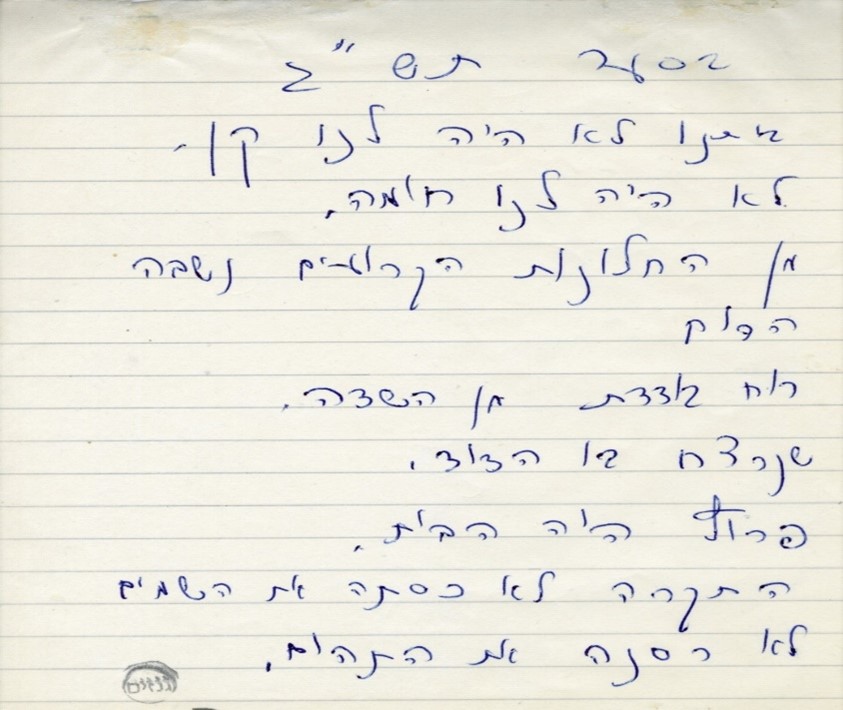 בסער תש"ג
לא היה לנו קן.
לא היה לנו חומה.
מן החלונות הקרועים נשבה
הרוח
רוח אובדת מן השדה.
שנרצח בו הדוד.
פרוץ היה הבית.
התקרה לא כסתה את השמים
לא רסנה את התהום.